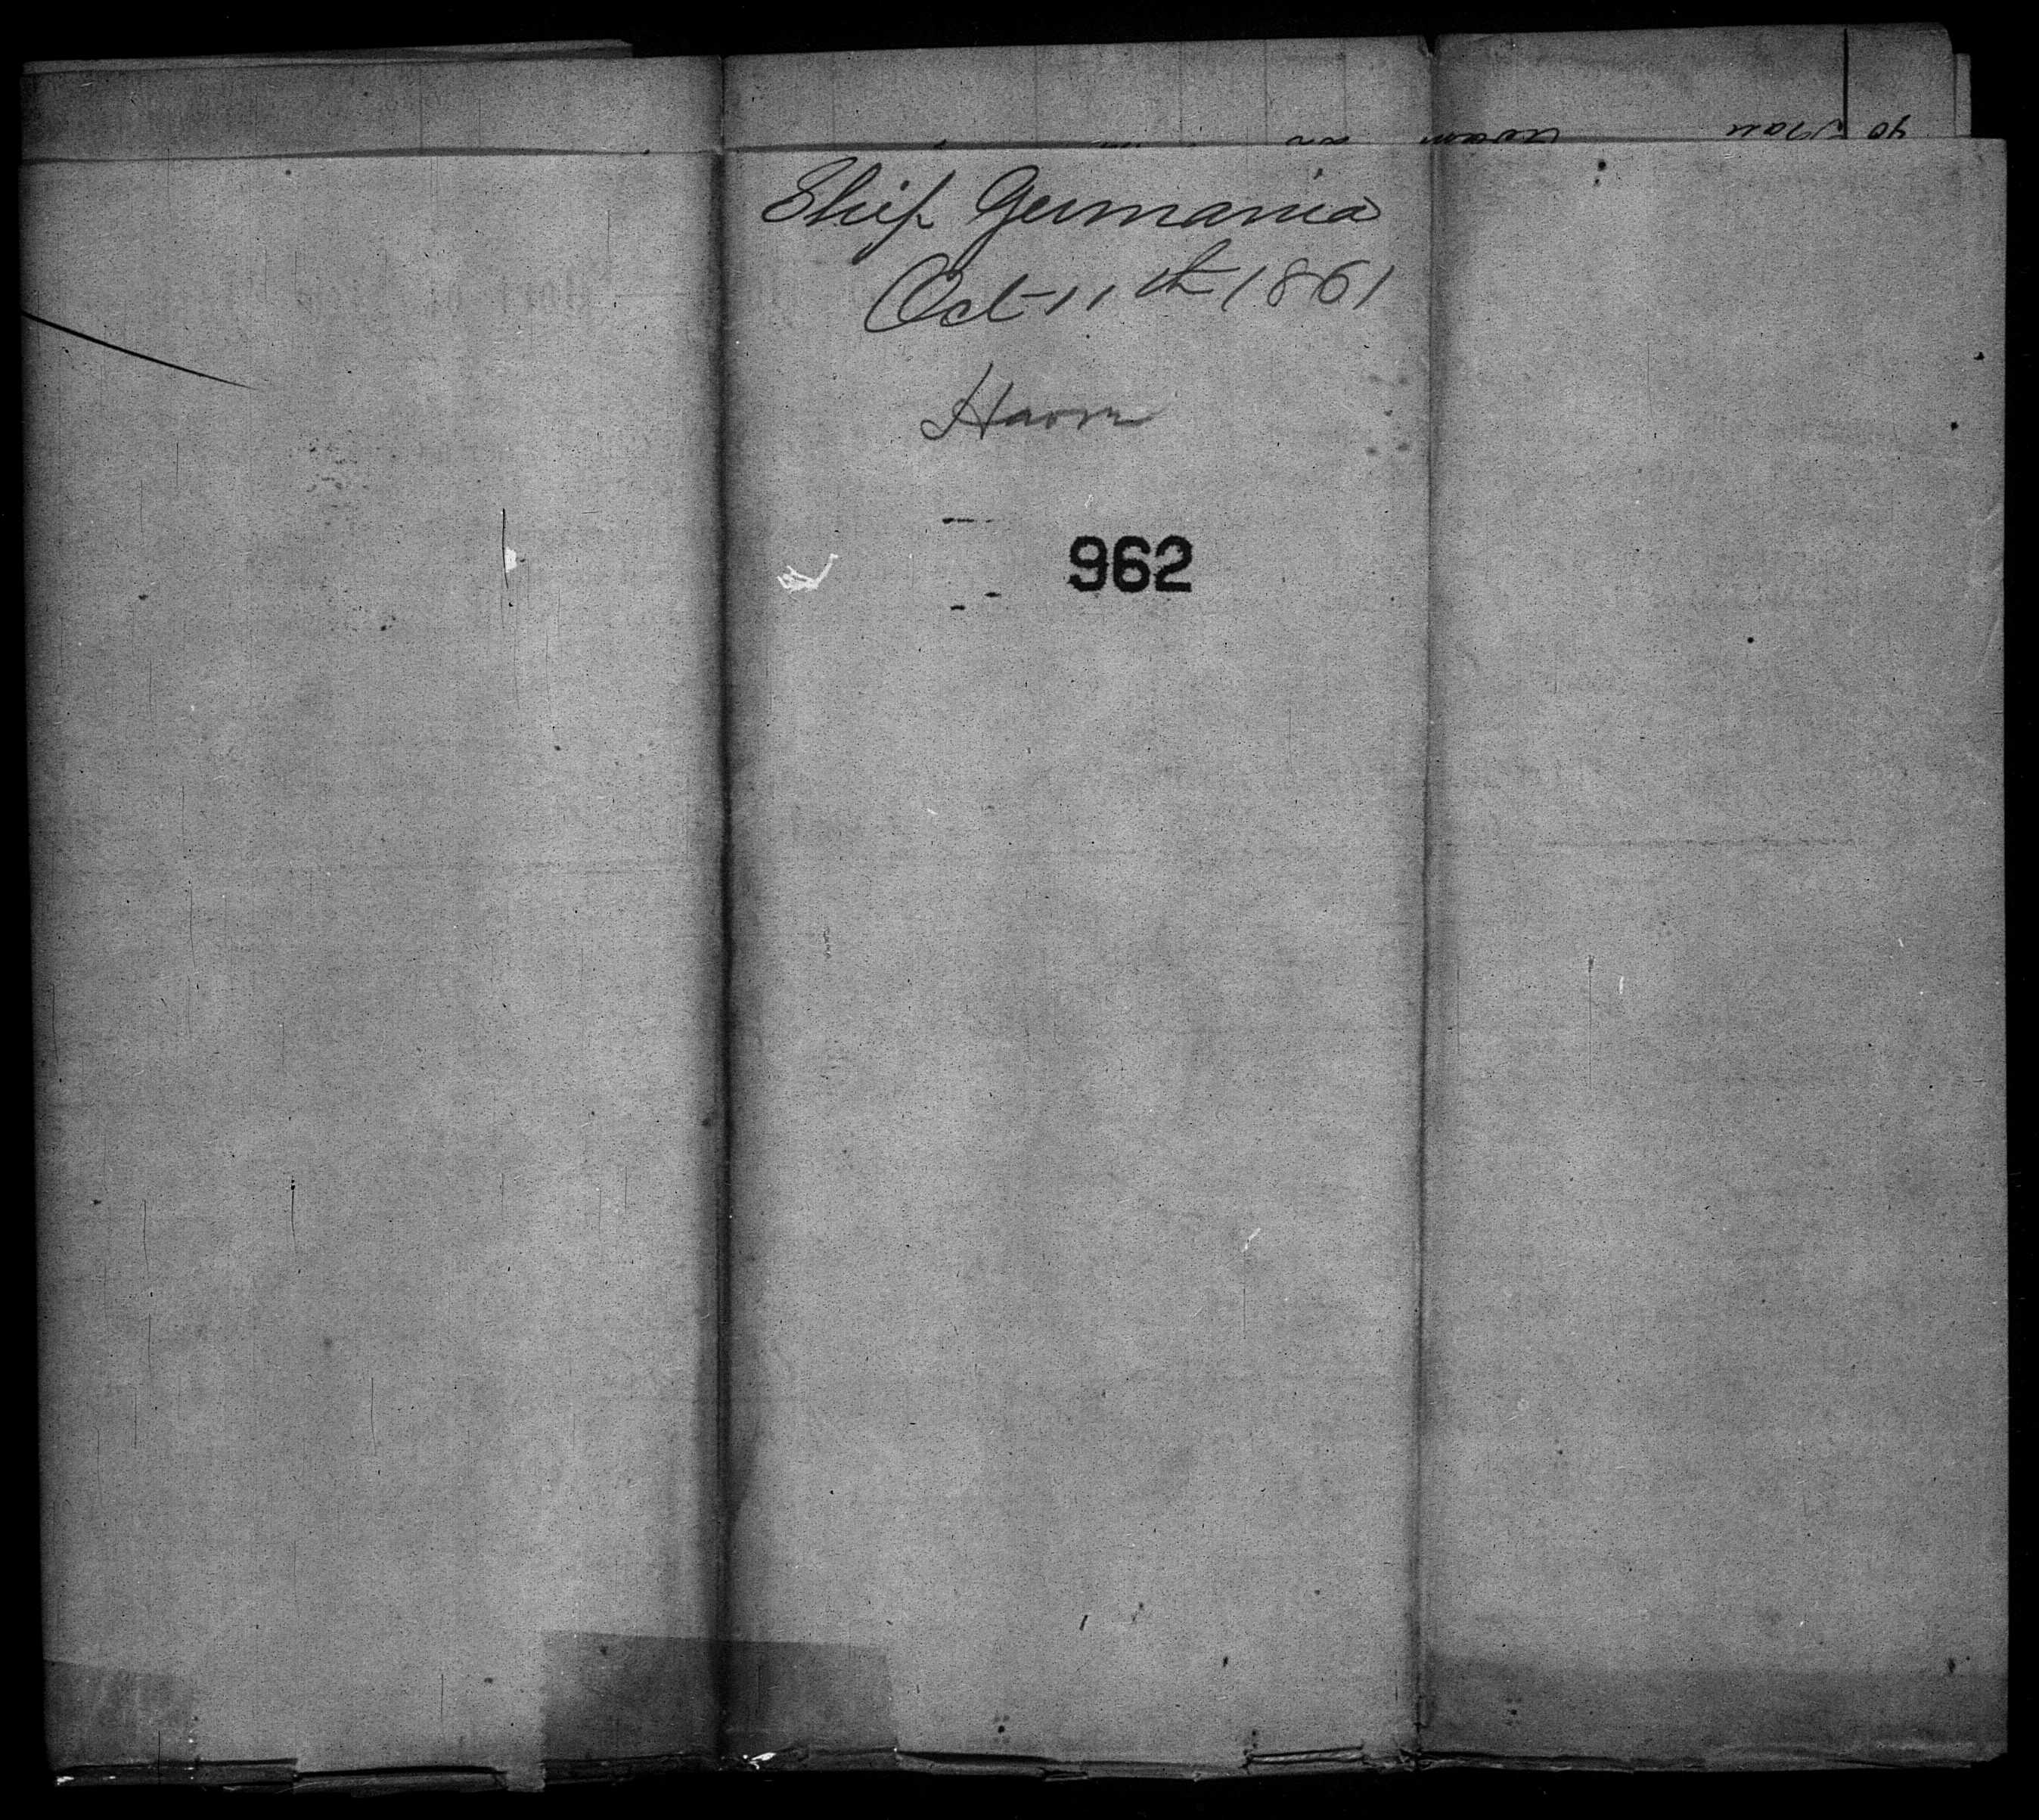 Ship Germania
Oct 11th 1861
Havre
962